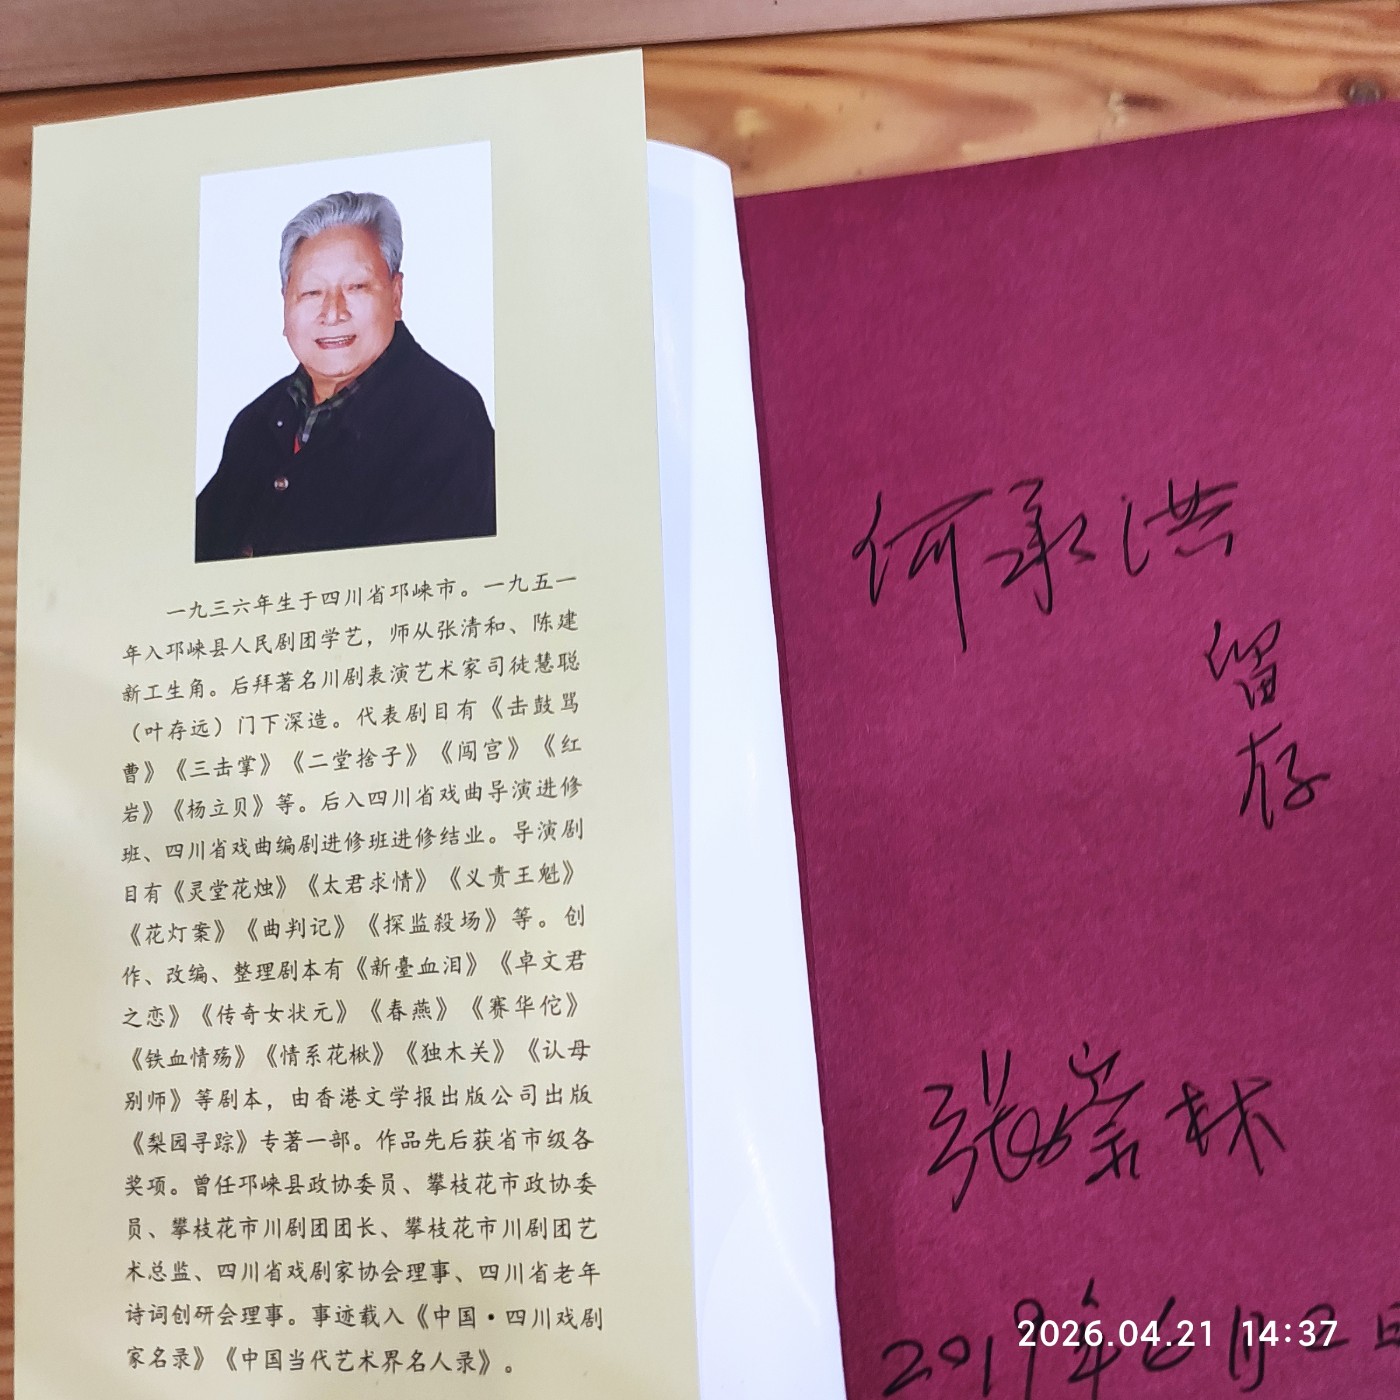 一九三六年生于四川省邛崃市。一九五一
年入邛崃县人民剧团学艺，师从张清和、陈建
新工生角。后拜著名川剧表演艺术家司徒慧聪
（叶存远）门下深造。代表剧目有《击鼓骂
曹》《三击掌》《二堂捨子》《闯宫》《红
岩》《杨立贝》等。后入四川省戏曲导演进修
班、四川省戏曲编剧进修班进修结业。导演剧
目有《灵堂花烛》《太君求情》《义责王魁》
《花灯案》《曲判记》《探监殺场》等。创
作、改编、整理剧本有《新臺血泪》《卓文君
之恋》《传奇女状元》《春燕》《赛华佗》
《铁血情殇》《情系花楸》《独木关》《认母
别师》等剧本，由香港文学报出版公司出版
《梨园寻踪》专著一部。作品先后获省市级各
奖项。曾任邛崃县政协委员、攀枝花市政协委
员、攀枝花市川剧团团长、攀枝花市川剧团艺
术总监、四川省戏剧家协会理事、四川省老年
诗词创研会理事。事迹载入《中国·四川戏剧
家名录》《中国当代艺术界名人录》。
何承洪
留
存
张崇林
2019年6月2日
2026.04.21 14:37